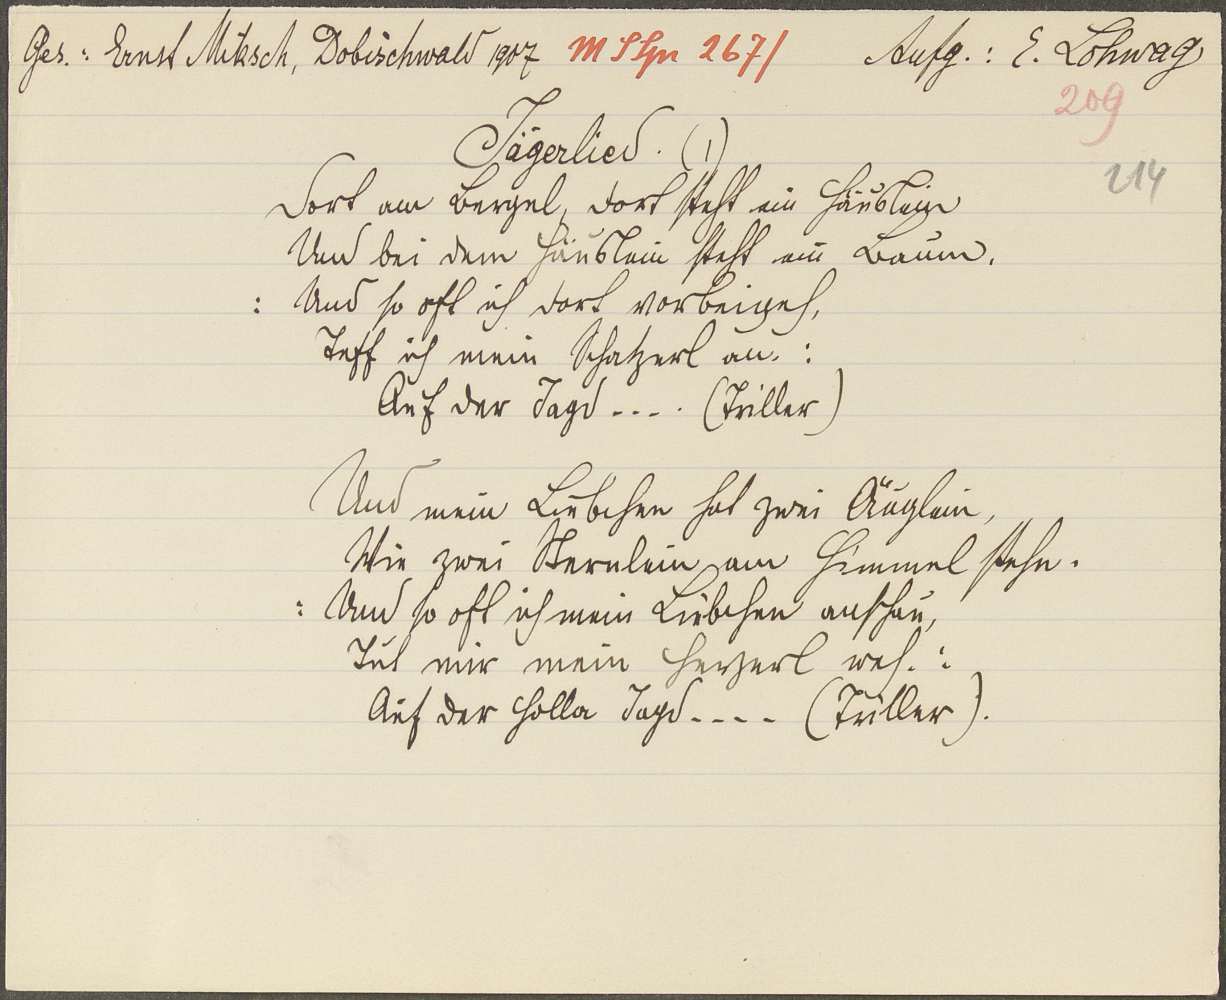 Ges.: Ernst Miksch, Dobischwald 1907 267/ Aufg.: E. Lohwag
209
Jägerlied. (1)
214
Dort am Bergel, dort steht ein Häuslein
Und bei dem Häuslein steht ein Baum.
: Und so oft ich dort vorbeigeh,
Teff ich mein Schatzerl an. :
Auf der Jagd - - - . (Triller)
Und mein Liebchen hat zwei Äuglein,
Wie zwei Sternlein am Himmel stehn.
: Und so oft ich mein Liebchen anschau,
Tut mir mein Herzerl weh. :
Auf der Holla Jagd - - - - (Triller).